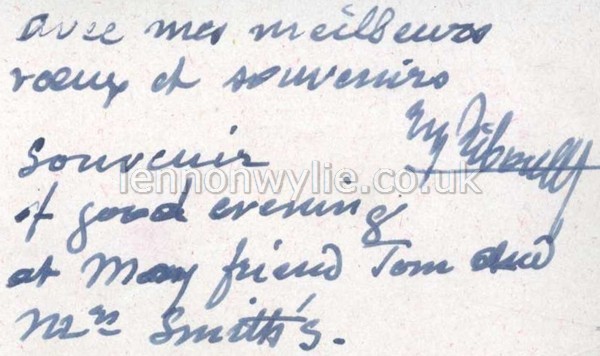 avec mes meilleurs
vœux et souvenirs
Souvenir
lennonwylie.co.uk
of good evening
at May friend Tom and
Mrs Smith's.